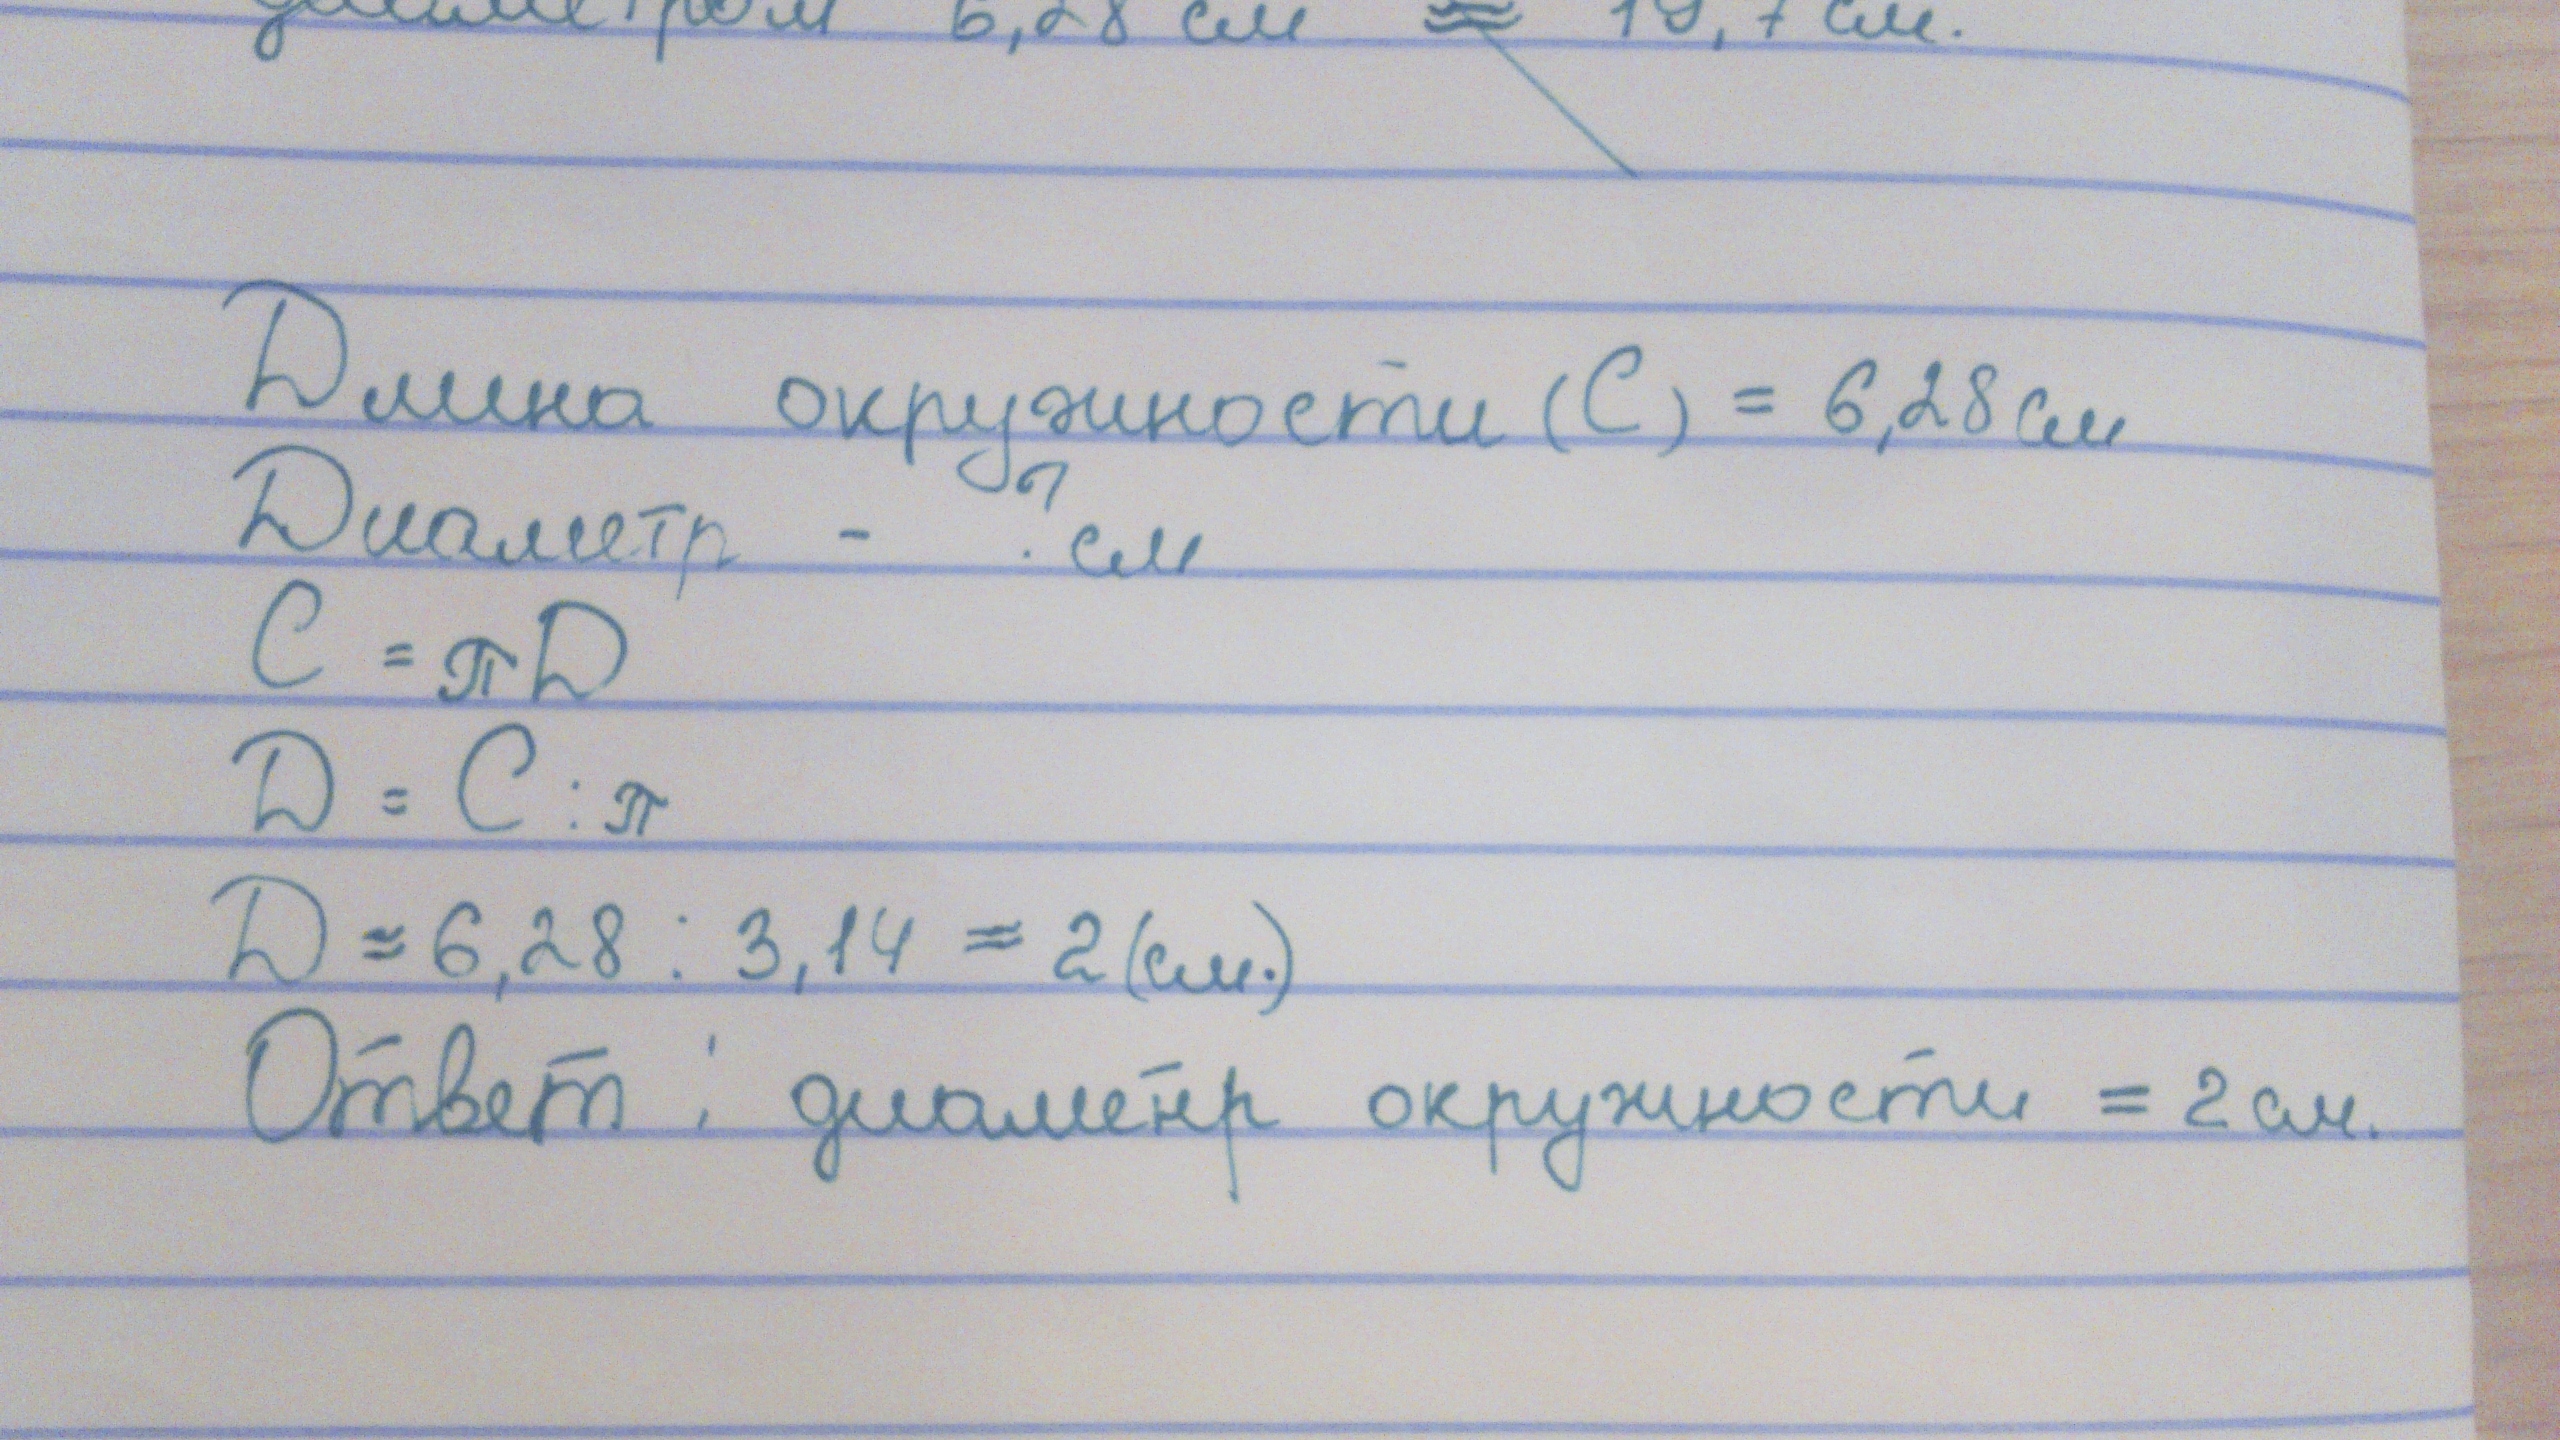 диаметром 6,28 см ≈ 19,7 см.
Длина окружности (С) = 6,28 см
Диаметр - ? см
C = πD
D = C : π
D ≈ 6,28 : 3,14 ≈ 2 (см.)
Ответ : диаметр окружности = 2 см.